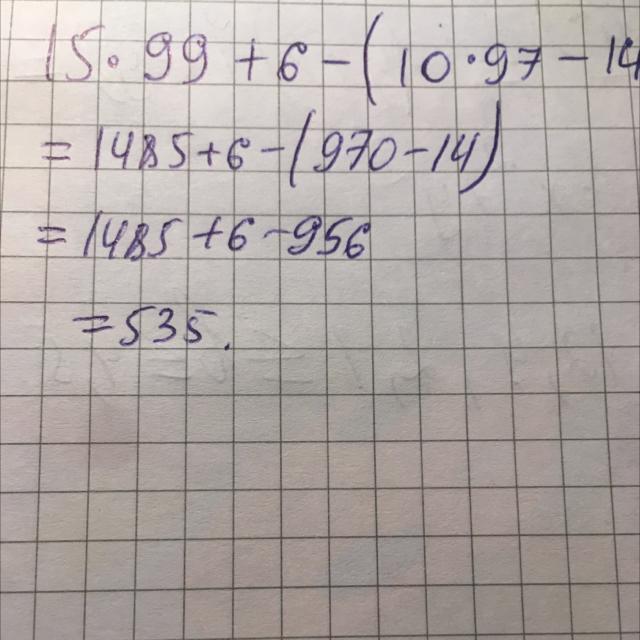 15·99+6-(10·97-14
=1485+6-(970-14)
=1485+6-956
=535.